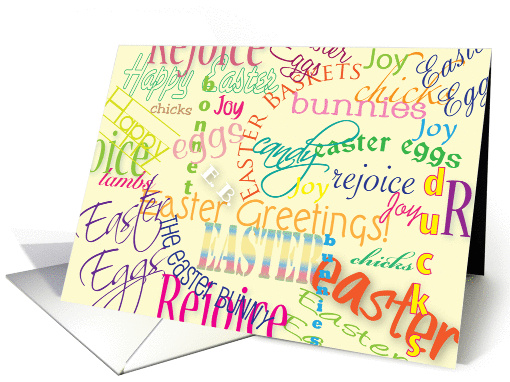 Rejoice
Easter
Eggs
Joy
Easter
Egg
Happy Easter
bonnet
EASTER BASKETS
chick
chicks
Joy
bunnies
Happy
eggs
candy
easter eggs
Joy
oice
lambs
E B
joy
rejoice
Joy
ducks
R
Easter Greetings!
Easter
Eggs
THE EASTER BUNNY
EASTER
bunnies
chicks
easter
Rejoice
Easter
Easter